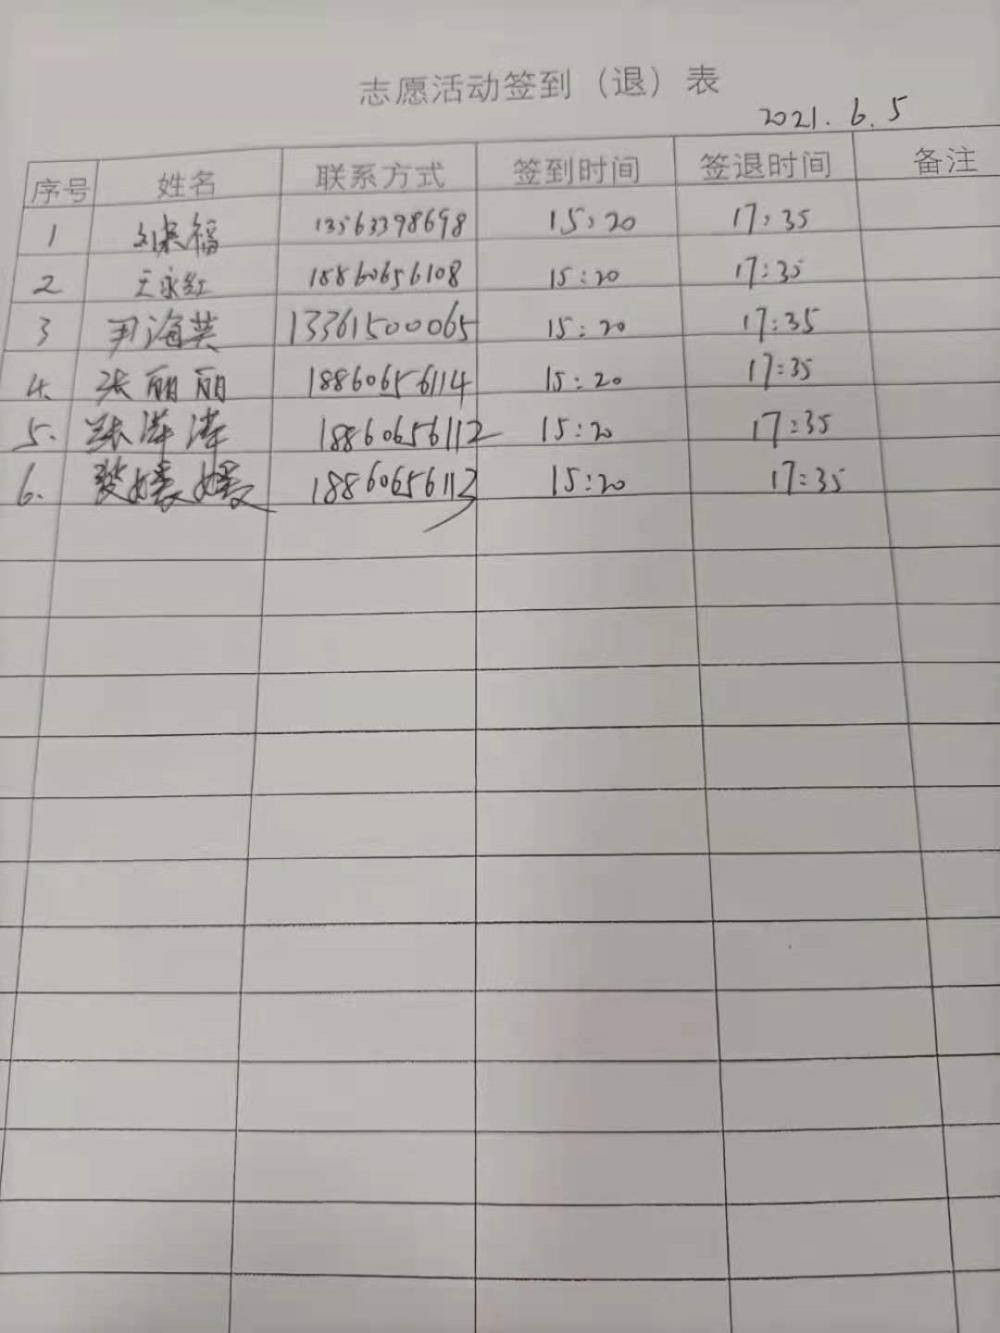 志愿活动签到（退）表
2021.6.5
序号 姓名 联系方式 签到时间 签退时间 备注
1 刘来福 13563398698 15:20 17:35
2 王永红 18860656108 15:20 17:35
3 尹海英 13361500065 15:20 17:35
4. 张丽丽 18860656114 15:20 17:35
5. 张萍萍 18860656112 15:20 17:35
6. 媛媛 18860656113 15:20 17:35